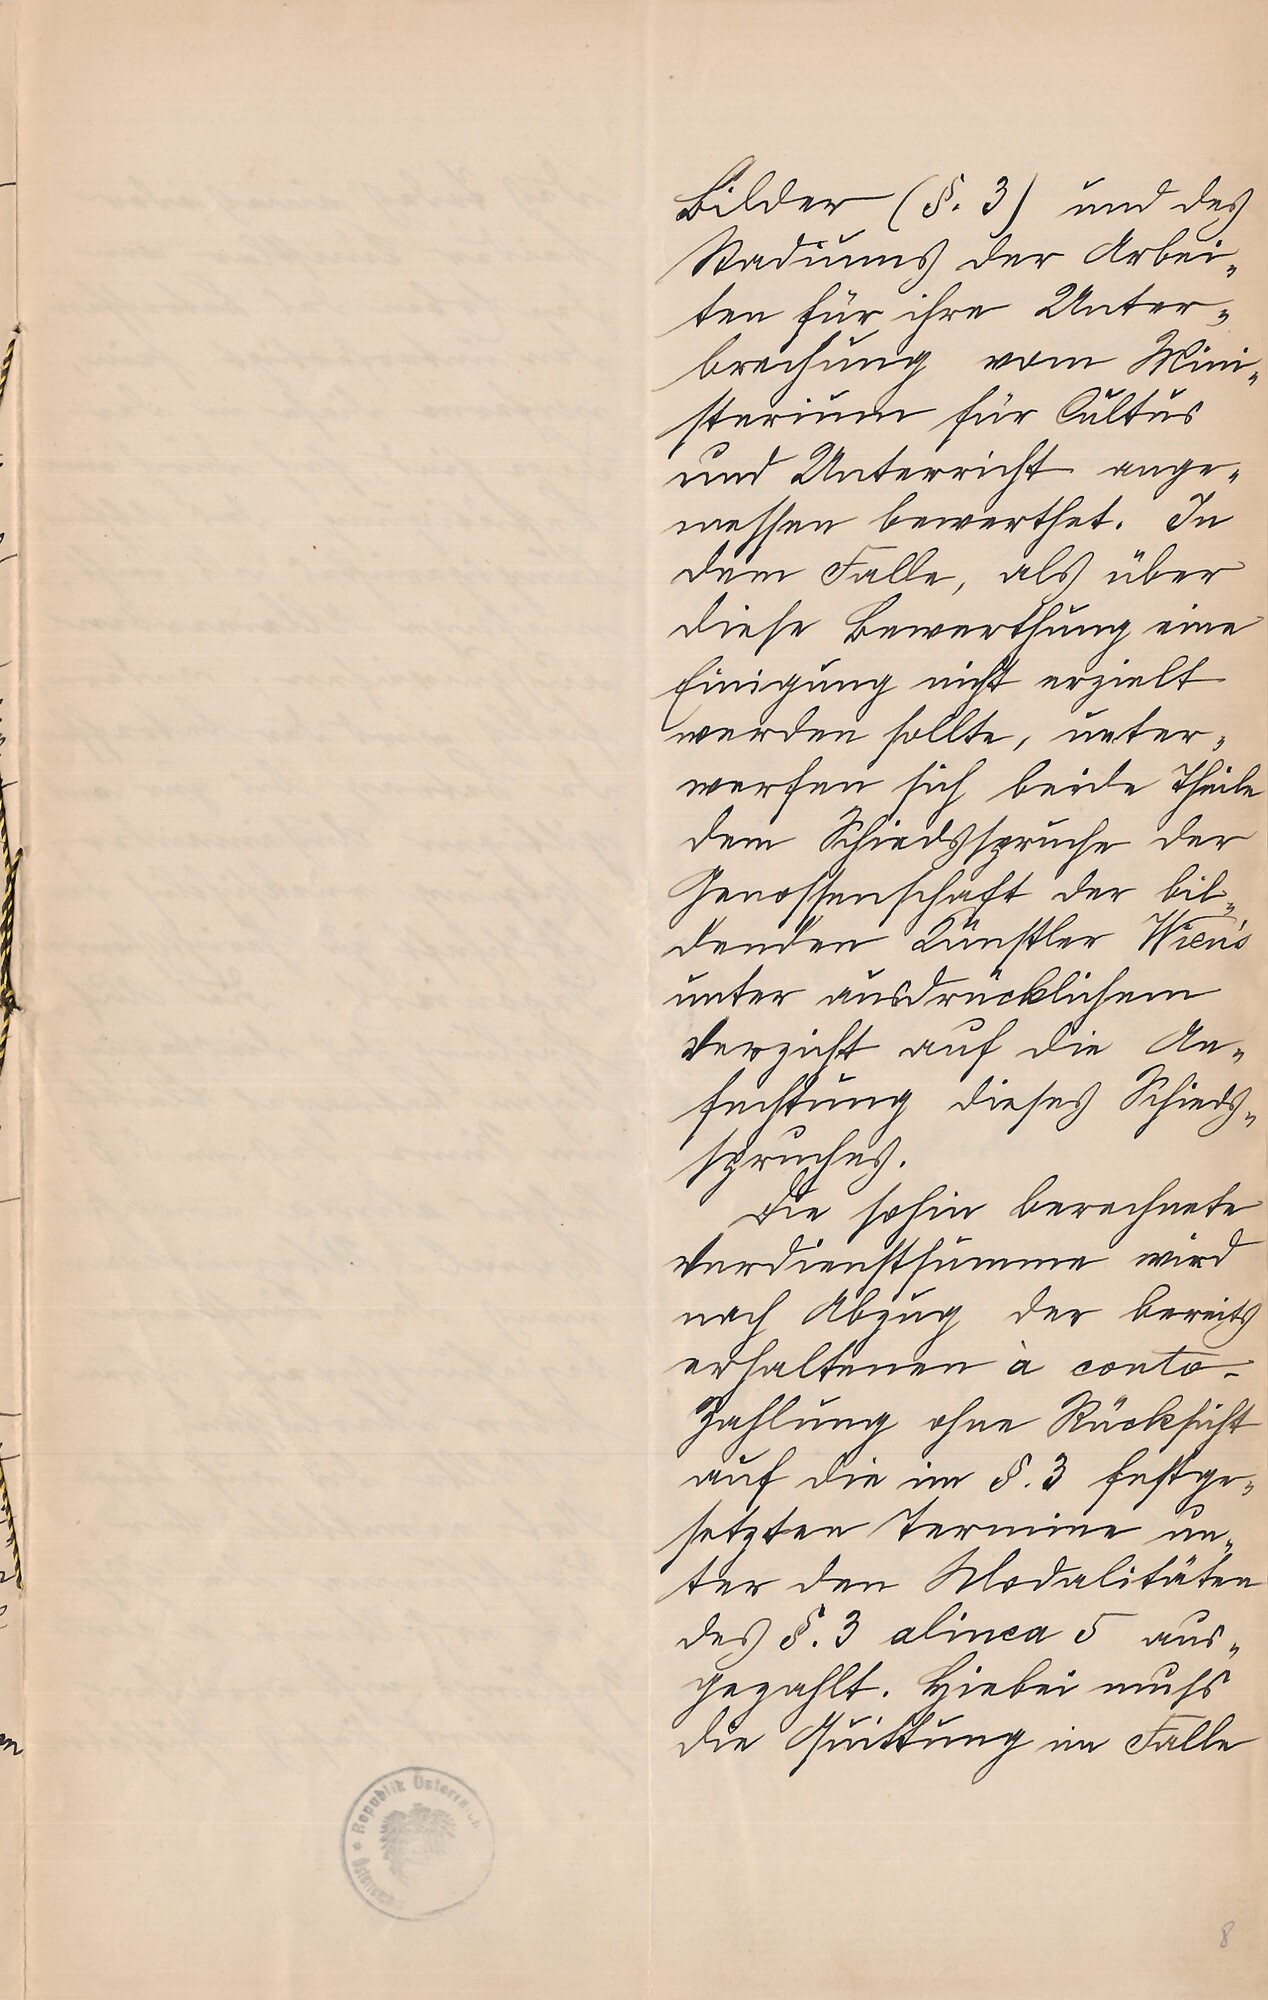 Bilder (§. 3) und des
Stadiums der Arbei-
ten für ihre Unter-
brechung vom Mini-
sterium für Cultus
und Unterricht ange-
messen bewerthet. In
dem Falle, als über
diese Bewerthung eine
Einigung nicht erzielt
werden sollte, unter-
werfen sich beide Theile
dem Schiedsspruche der
Genossenschaft der bil-
denden Künstler Wien's
unter ausdrücklichem
Verzicht auf die An-
fechtung dieses Schieds-
spruches.
Die sohin berechnete
Verdienstsumme wird
nach Abzug der bereits
erhaltenen à conto-
Zahlung ohne Rücksicht
auf die im §. 3 festge-
setzten Termine un-
ter den Modalitäten
des §. 3 alinea 5 aus-
gezahlt. Hiebei muss
die Quittung im Falle
Republik Österreich
8